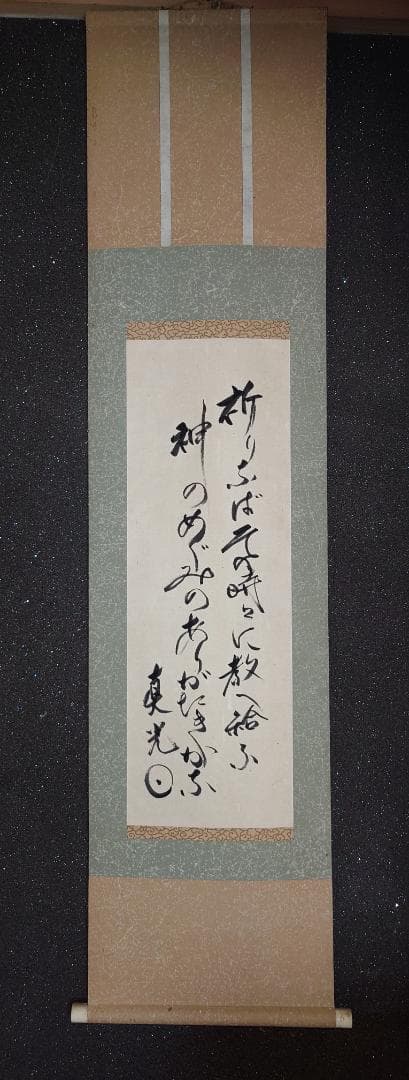 祈りなば其の時々に教へ給ふ
神のめぐみのありがたきかな
真光